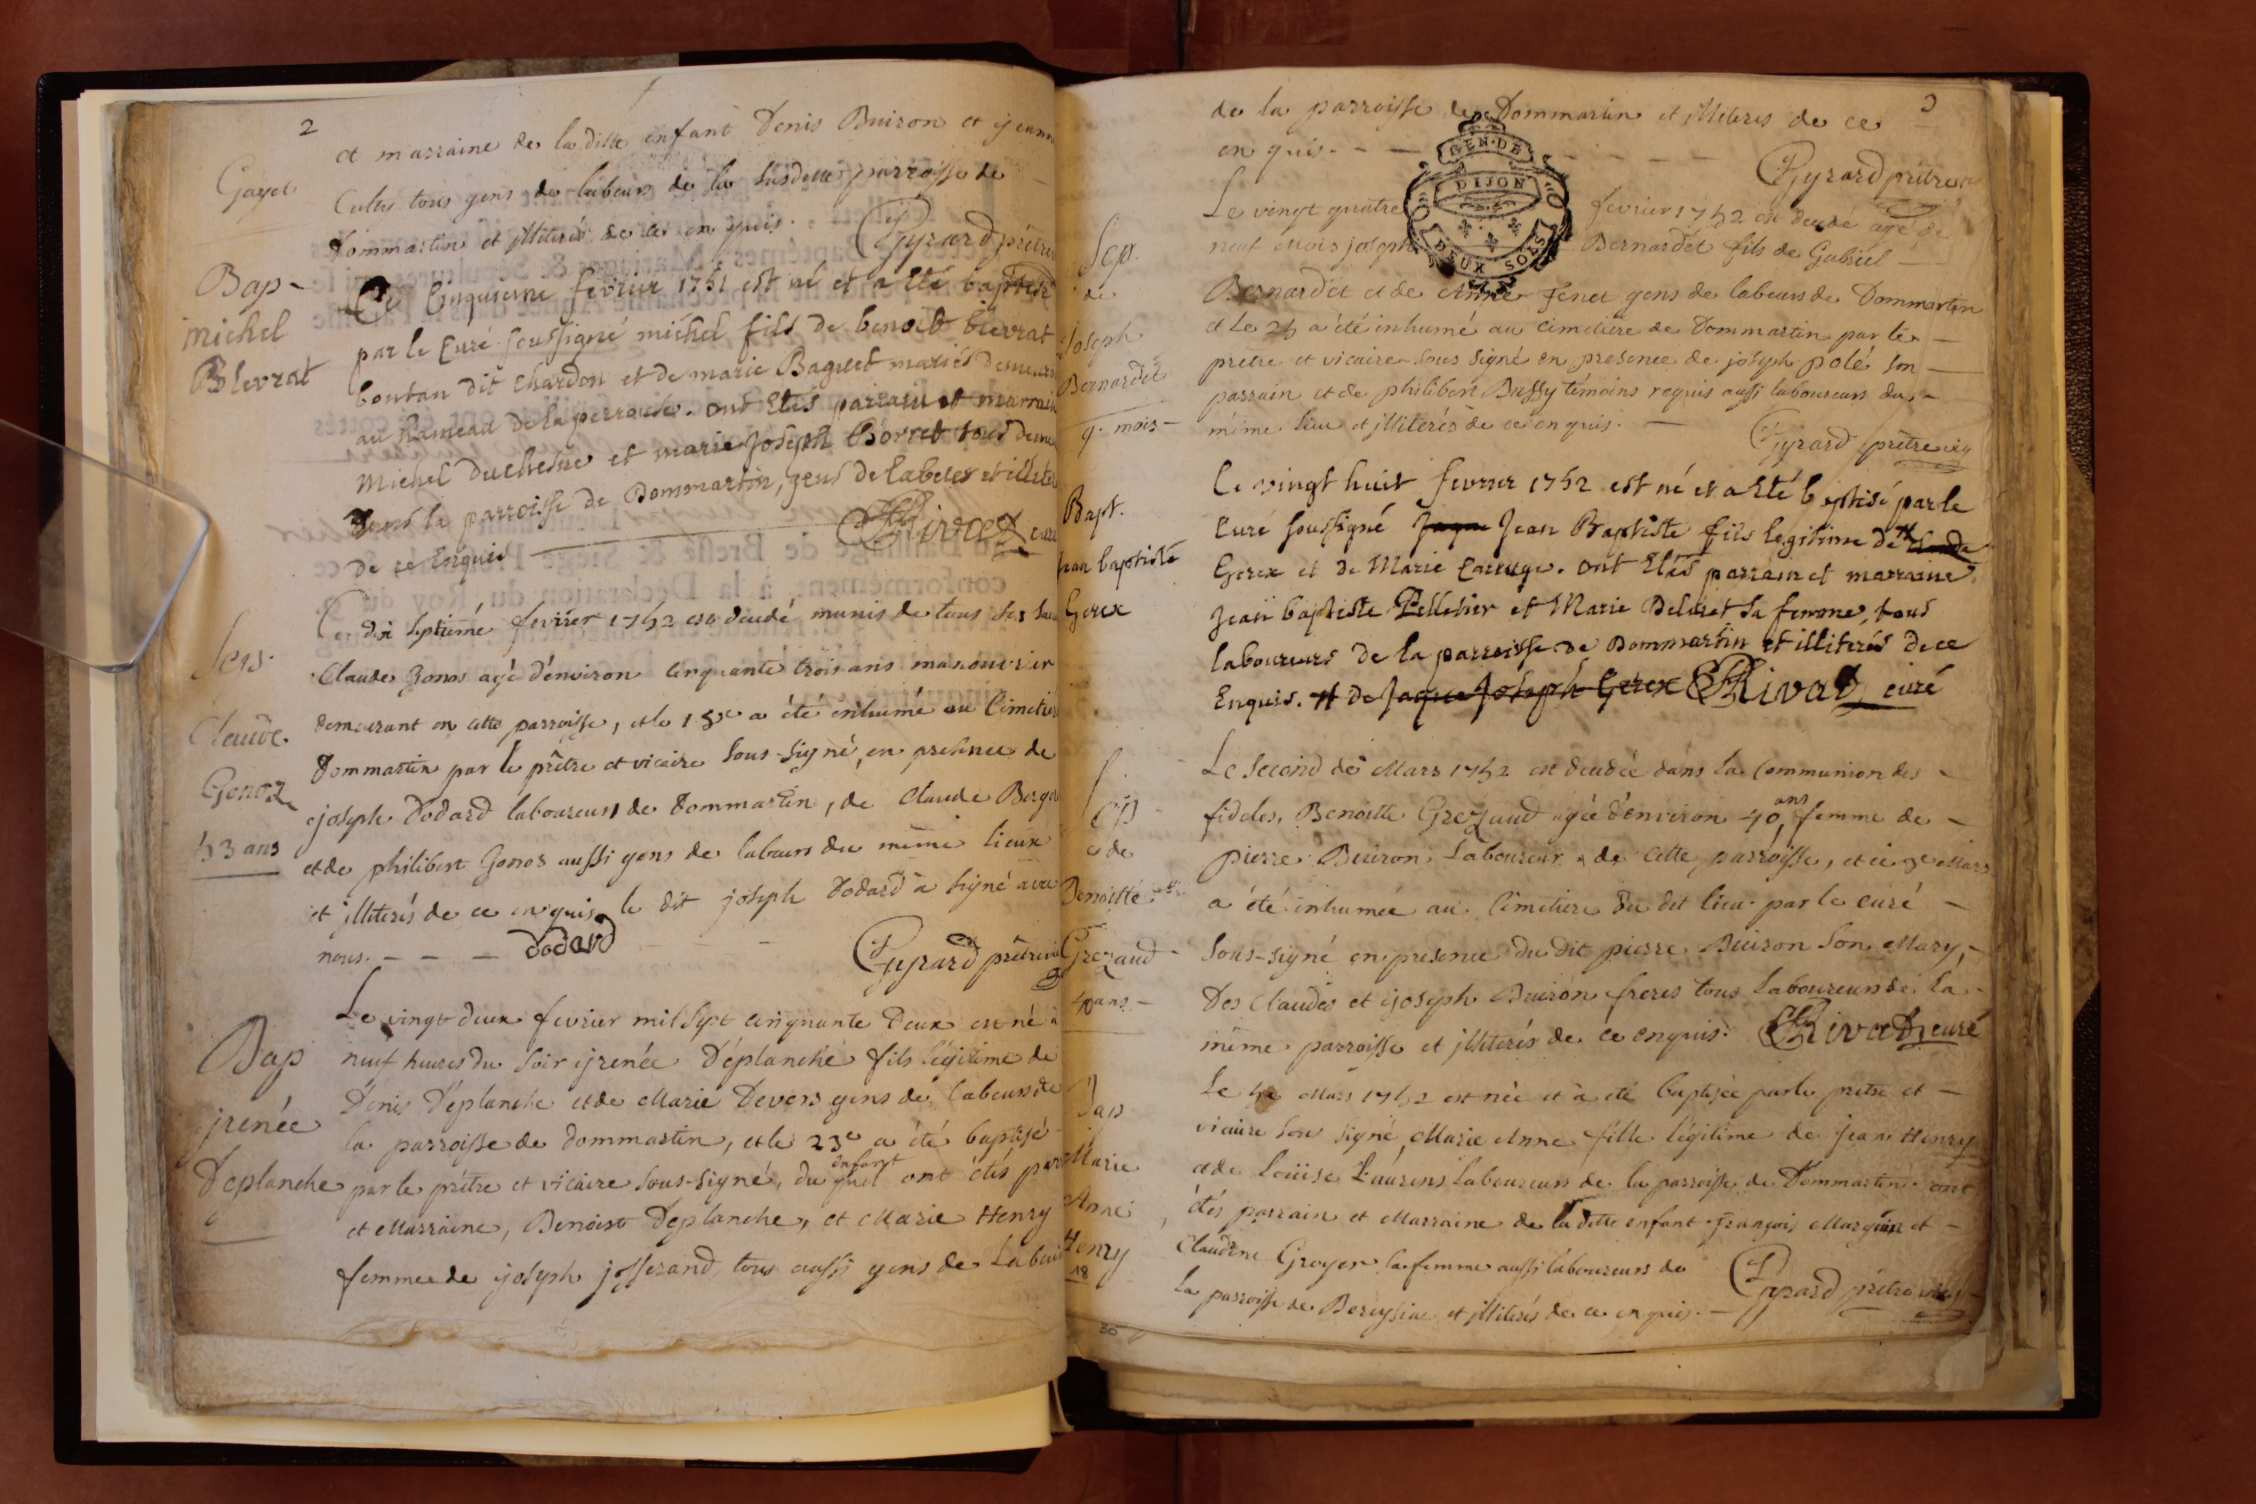 2
Gayet
et marraine de la ditte enfant Denis Buiron et jeanne
Culas tous gens de labeurs de la susditte parroisse de
Dommartin et illiterés de ce en quis. Gyrard prêtre
Bap-
michel
Blevrat
Le Cinquieme fevrier 1752 est né et a eté baptisé
par le Curé soussigné michel fils de benoit blevrat
boutan dit chardon et de marie Baguet mariés demeurant
au hameau de la perrouse. ont etés parrain et marraine
Michel duchesne et marie joseph Borret tous demeu
dans la parroisse de Dommartin, gens de labeur et illiterés
de ce enquis Rivat curé
Sep.
Claude
Gonoz
53 ans
Le dix septiéme fevrier 1752 est decedé munis de tous ses Sac
Claude Gonos agé d'environ cinquante trois ans manouvrier
demeurant en cette parroisse, et le 18e a été inhumé au Cimetiere
Dommartin par le prêtre et vicaire sous-signé, en presence de
joseph Dodard laboureur de Dommartin, de Claude Berger
et de philibert Gonos aussi gens de labeurs du même lieux
et illiterés de ce enquis, le dit joseph Dodard a signé avec
nous. - - - dodard - - Gyrard prêtre vic
Bap
jrenée
Deplanche
Le vingt-deux fevrier mil sept cinquante Deux est né à
neuf heures du soir jrenée Déplanche fils légitime de
Denis Déplanche et de Marie Devers gens de labeurs de
la parroisse de Dommartin, et le 23e a été baptisé
par le prêtre et vicaire sous-signé, du quel enfant ont étés par
et Marraine, Benoist Deplanche, et Marie Henry
femme de joseph josserand, tous aussi gens de Labeur
de la parroisse de Dommartin et illiterés de ce
en quis. - - - - - - Gyrard prêtre
GEN. DE
DIJON
DEUX SOLS
Sep.
de
Joseph
Bernardet
9. mois -
Le vingt quatre fevrier 1752 est decedé agé de
neuf mois joseph Bernardet fils de Gabriel -
Bernardet et de Anne Fenet gens de labeurs de Dommartin
et le 25 a été inhumé au cimetiere de Dommartin par le -
prêtre et vicaire sous signé en presence de joseph polé son -
parrain et de philibert Bussy témoins requis aussi laboureurs du -
même lieu et illiterés de ce en quis. - Gyrard prêtre vic
Bapt.
jean baptiste
Gerex
Le vingt huit fevrier 1752 est né et a eté baptisé par le
Curé soussigné Jaque Jean Baptiste fils legitime de # Claude
Gerex et de Marie Carruge. ont etés parrain et marraine
jean baptiste Pelletier et Marie Deluret sa femme, tous
laboureurs de la parroisse de Dommartin et illiterés de ce
Enquis. # de Jaque Joseph Gerex Rivat curé
Sep
de
Benoitte
Grezaud
40 ans -
Le second de Mars 1752 est decedée dans la Communion des -
fideles, Benoitte Grezaud agée d'environ 40 ans, femme de -
pierre Buiron Laboureur de cette parroisse, et le 3e Mars
a été inhumée au Cimetiere du dit lieu par le curé -
sous-signé en presence du dit pierre Buiron son Mary, -
Des Claudes et joseph Buiron freres tous Laboureurs de la -
même parroisse et illiterés de ce enquis. Rivat curé
Bap
Marie
Anne
Henry
18
Le 5e Mars 1752 est née et a été baptisée par le prêtre et -
vicaire sous signé, Marie Anne fille légitime de jean Henry
et de Loüise Laurens Laboureurs de la parroisse de Dommartin ont
étés parrain et Marraine de la ditte enfant françois Marguin et -
Claudine Groyer sa femme aussi laboureurs de
la parroisse de et illiterés de ce enquis. - Gyrard prêtre vic
30